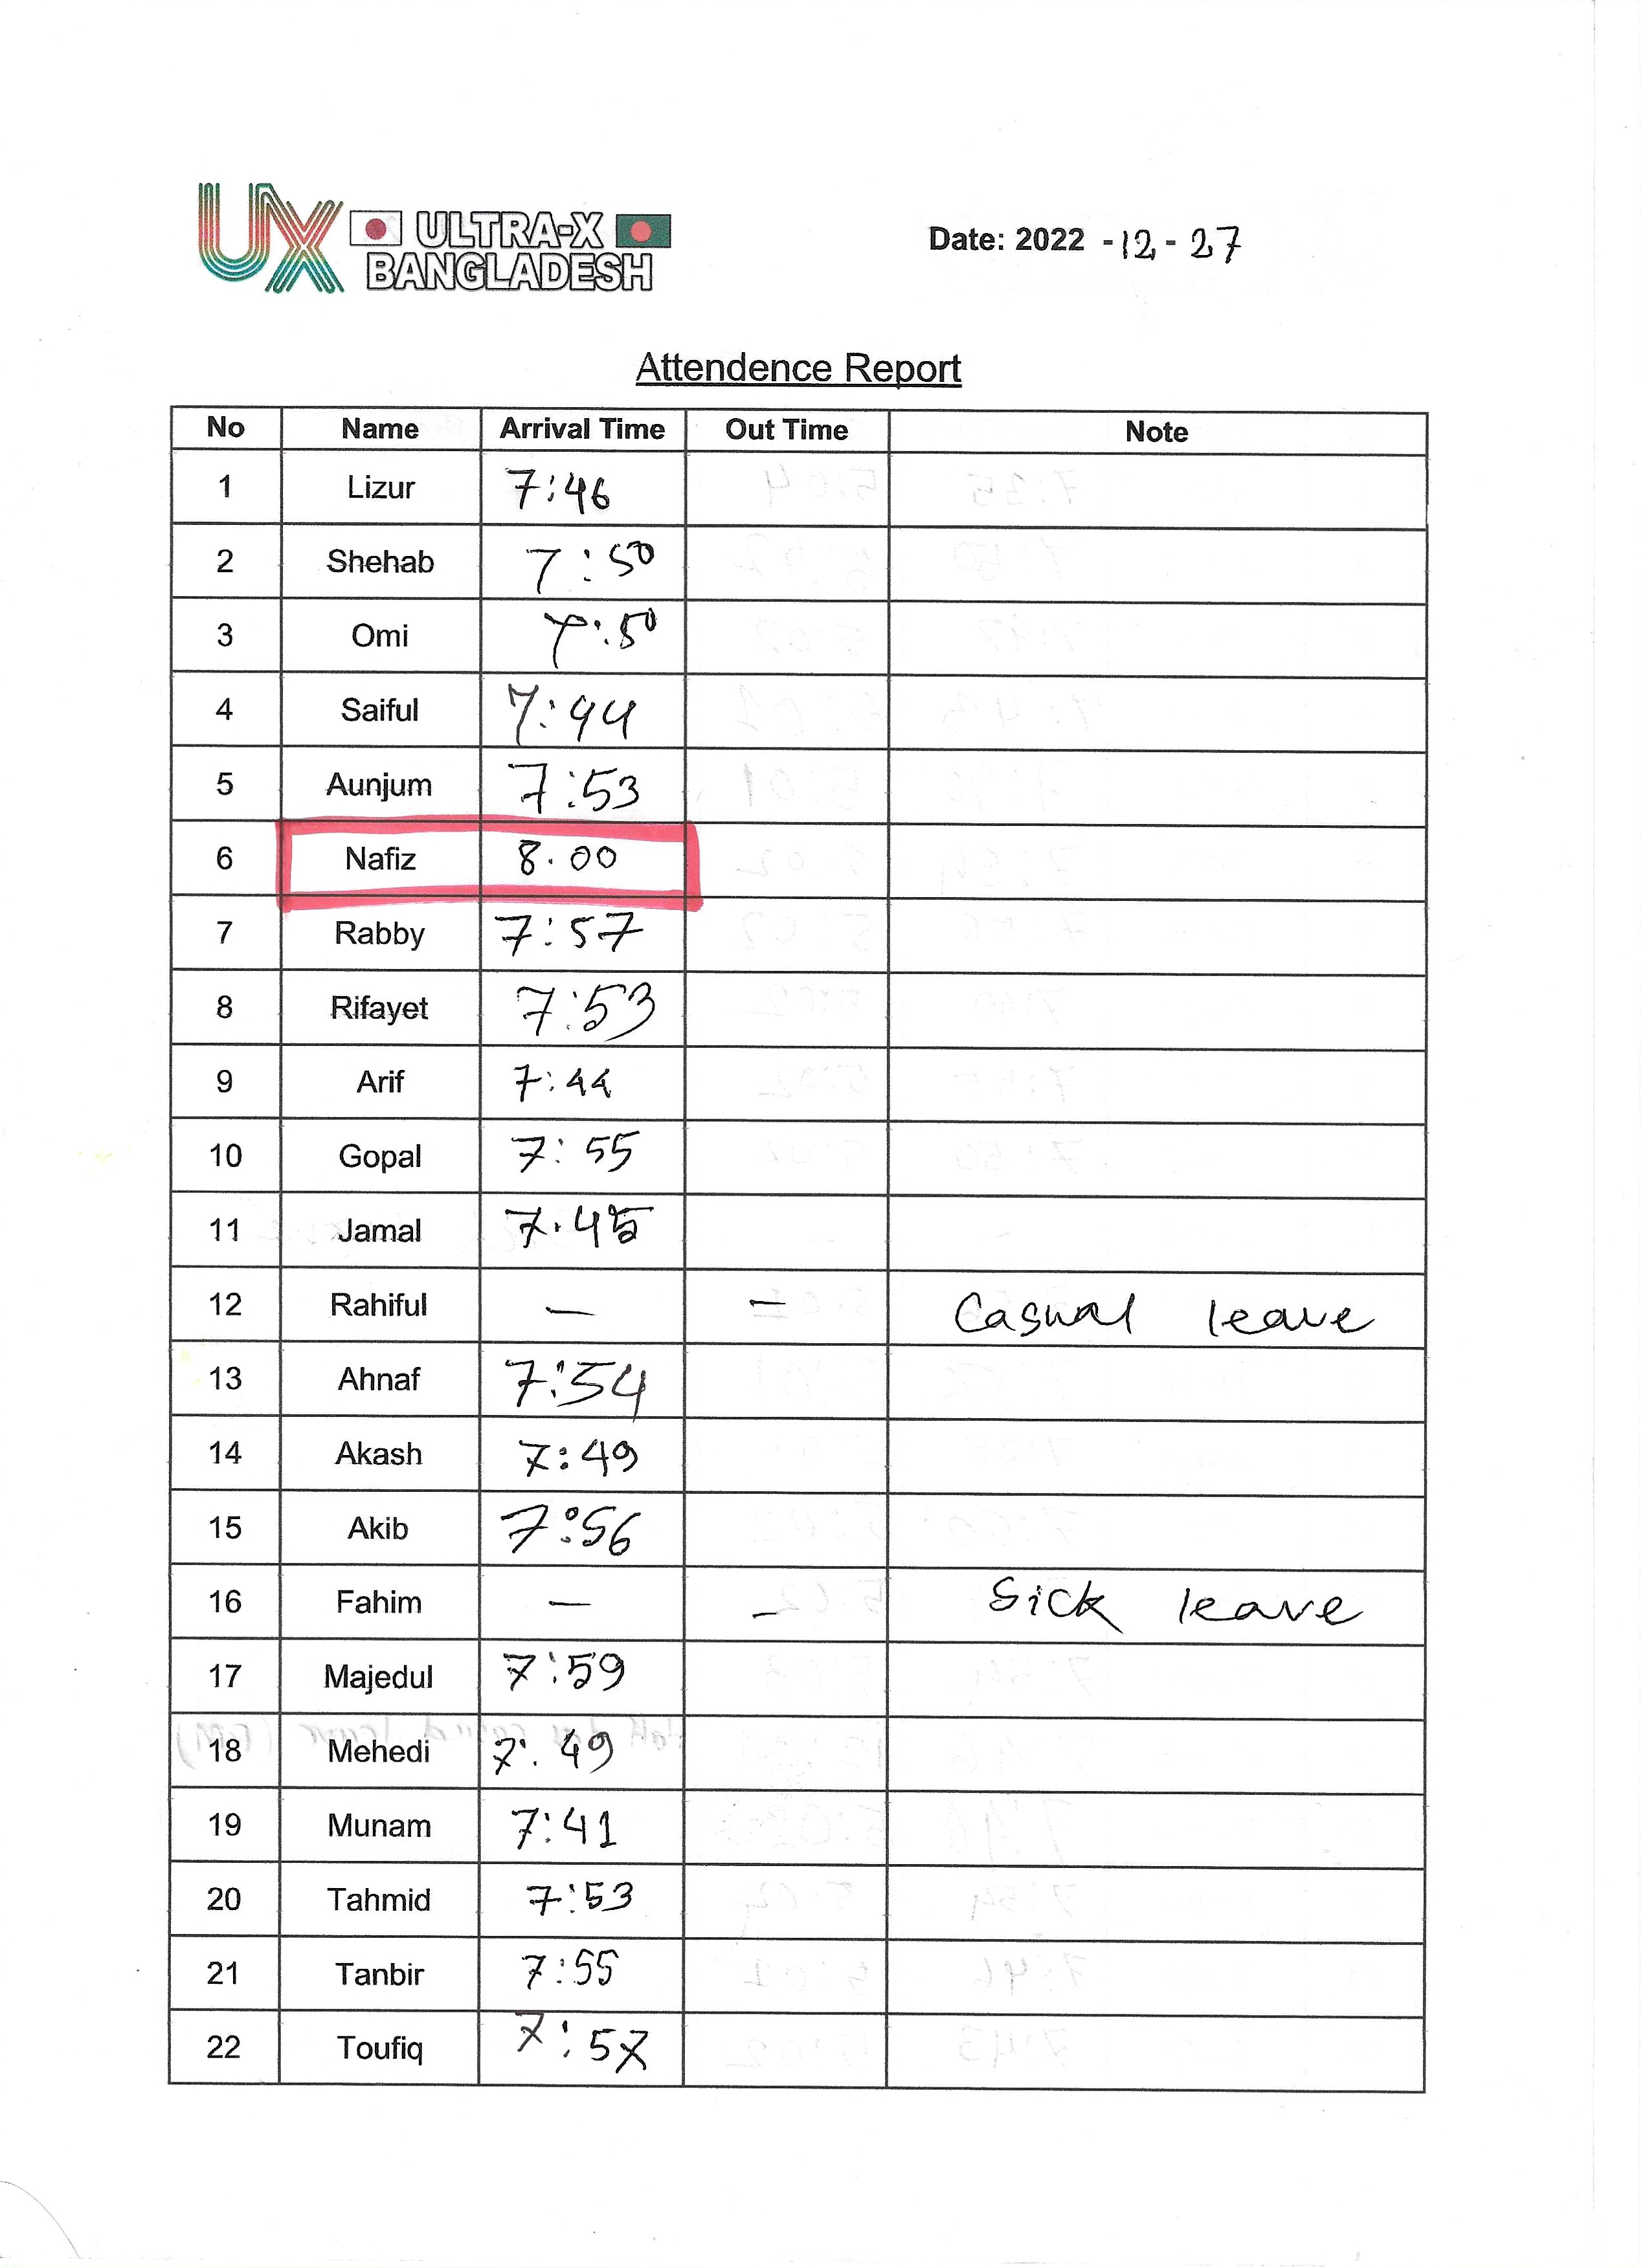 UX ULTRA-X
BANGLADESH
Date: 2022 -12-27
Attendence Report
No Name Arrival Time Out Time Note
1 Lizur 7:46
2 Shehab 7:50
3 Omi 7:50
4 Saiful 7:44
5 Aunjum 7:53
6 Nafiz 8.00
7 Rabby 7:57
8 Rifayet 7:53
9 Arif 7:44
10 Gopal 7:55
11 Jamal 7.45
12 Rahiful — — Casual leave
13 Ahnaf 7:54
14 Akash 7:49
15 Akib 7:56
16 Fahim — — Sick leave
17 Majedul 7:59
18 Mehedi 7:49
19 Munam 7:41
20 Tahmid 7:53
21 Tanbir 7:55
22 Toufiq 7:57